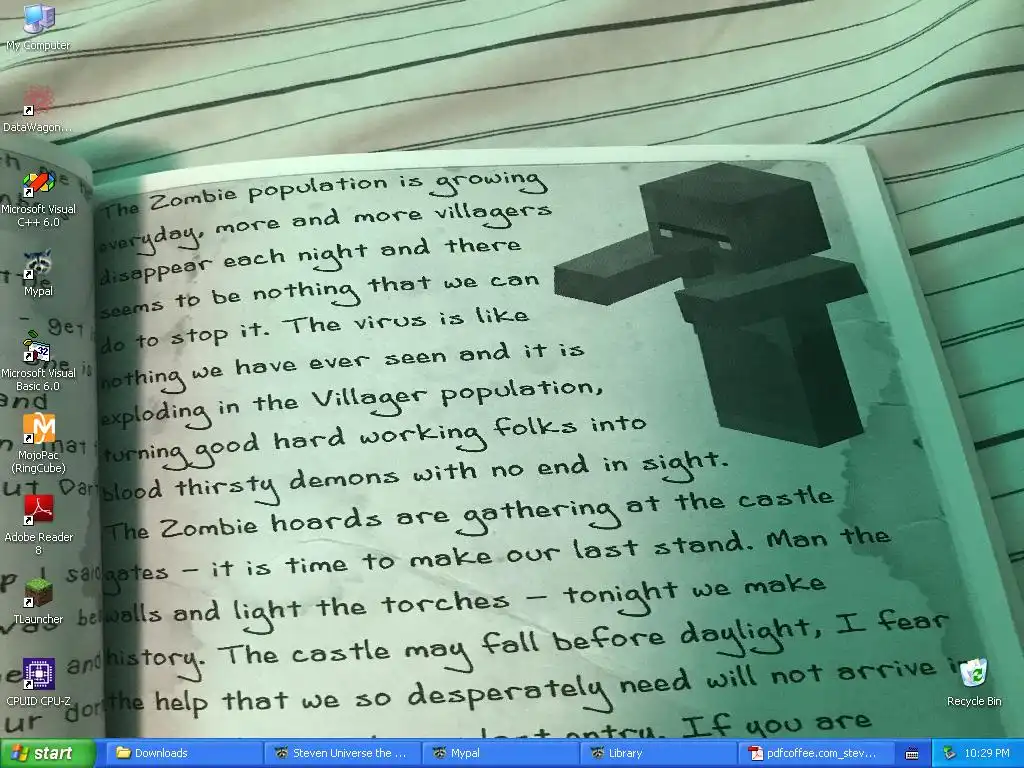 My Computer
DataWagon...
Microsoft Visual
C++ 6.0
Mypal
Microsoft Visual
Basic 6.0
MojoPac
(RingCube)
Adobe Reader
8
TLauncher
CPUID CPU-Z
Recycle Bin
The Zombie population is growing
everyday, more and more villagers
disappear each night and there
seems to be nothing that we can
do to stop it. The virus is like
nothing we have ever seen and it is
exploding in the Villager population,
turning good hard working folks into
blood thirsty demons with no end in sight.
The Zombie hoards are gathering at the castle
gates – it is time to make our last stand. Man the
walls and light the torches – tonight we make
history. The castle may fall before daylight, I fear
the help that we so desperately need will not arrive
entry. If you are
start
Downloads
Steven Universe the ...
Mypal
Library
pdfcoffee.com_stev...
10:29 PM